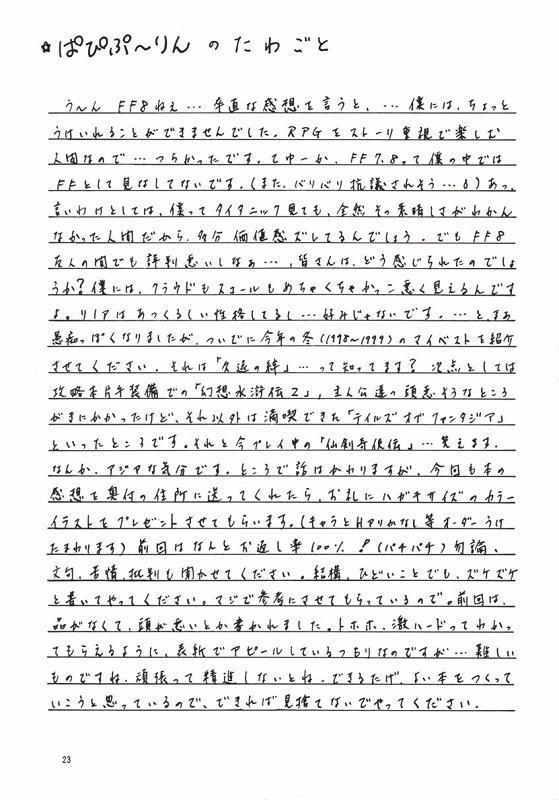 ☆ぱぴぷ〜りんのたわごと
う〜ん FF8ねえ…率直な感想を言うと、…僕には、ちょっと
うけいれることができませんでした。RPGをストーリ重視で楽しむ
人間なので…つらかったです。てゆーか、FF7.8って僕の中では
FFとして見なしてないです。(また、バリバリ抗議されそう…)あっ、
言いわけとしては、僕ってタイタニック見ても、全然その素晴しさがわかん
なかった人間だから、多分価値感ズレてるんでしょう。でもFF8
友人の間でも評判悪いしなぁ…、皆さんは、どう感じられたのでしょ
うか?僕には、クラウドもスコールもめちゃくちゃかっこ悪く見えるんです
よ。リノアはあつくるしい性格してるし…好みじゃないです。…と、まぁ
愚痴っぽくなりましたが、ついでに今年の冬(1998〜1999)のマイベストを紹介
させてください。それは「久遠の絆」…って知ってます?次点としては
攻略本片手装備での「幻想水滸伝2」、主人公達の頭悪そうなところ
がきにかかったけど、それ以外は満喫できた「テイルズオブファンタジア」
といったところです。それと今プレイ中の「仙剣奇侠伝」…笑えます。
なんか、アジアな気分です。ところで話はかわりますが、今回も本の
感想を奥付の住所に送ってくれたら、お礼にハガキサイズのカラー
イラストをプレゼントさせてもらいます。(キャラとHアリかなし等オーダーうけ
たまわります)前回はなんとお返し率100%!(パチパチ)勿論、
文句、苦情、批判も聞かせてください。結構、ひどいことでも、ズケズケ
と書いてやってください。マジで参考にさせてもらっているので。前回は、
品がなくて、頭が悪いとか書かれました。トホホ、激ハードってわかっ
てもらえるように、表紙でアピールしているつもりなのですが…難しい
ものですね、頑張って精進しないとね。できるだけ、よい本をつくって
いこうと思っているので、できれば見捨てないでやってください。
23